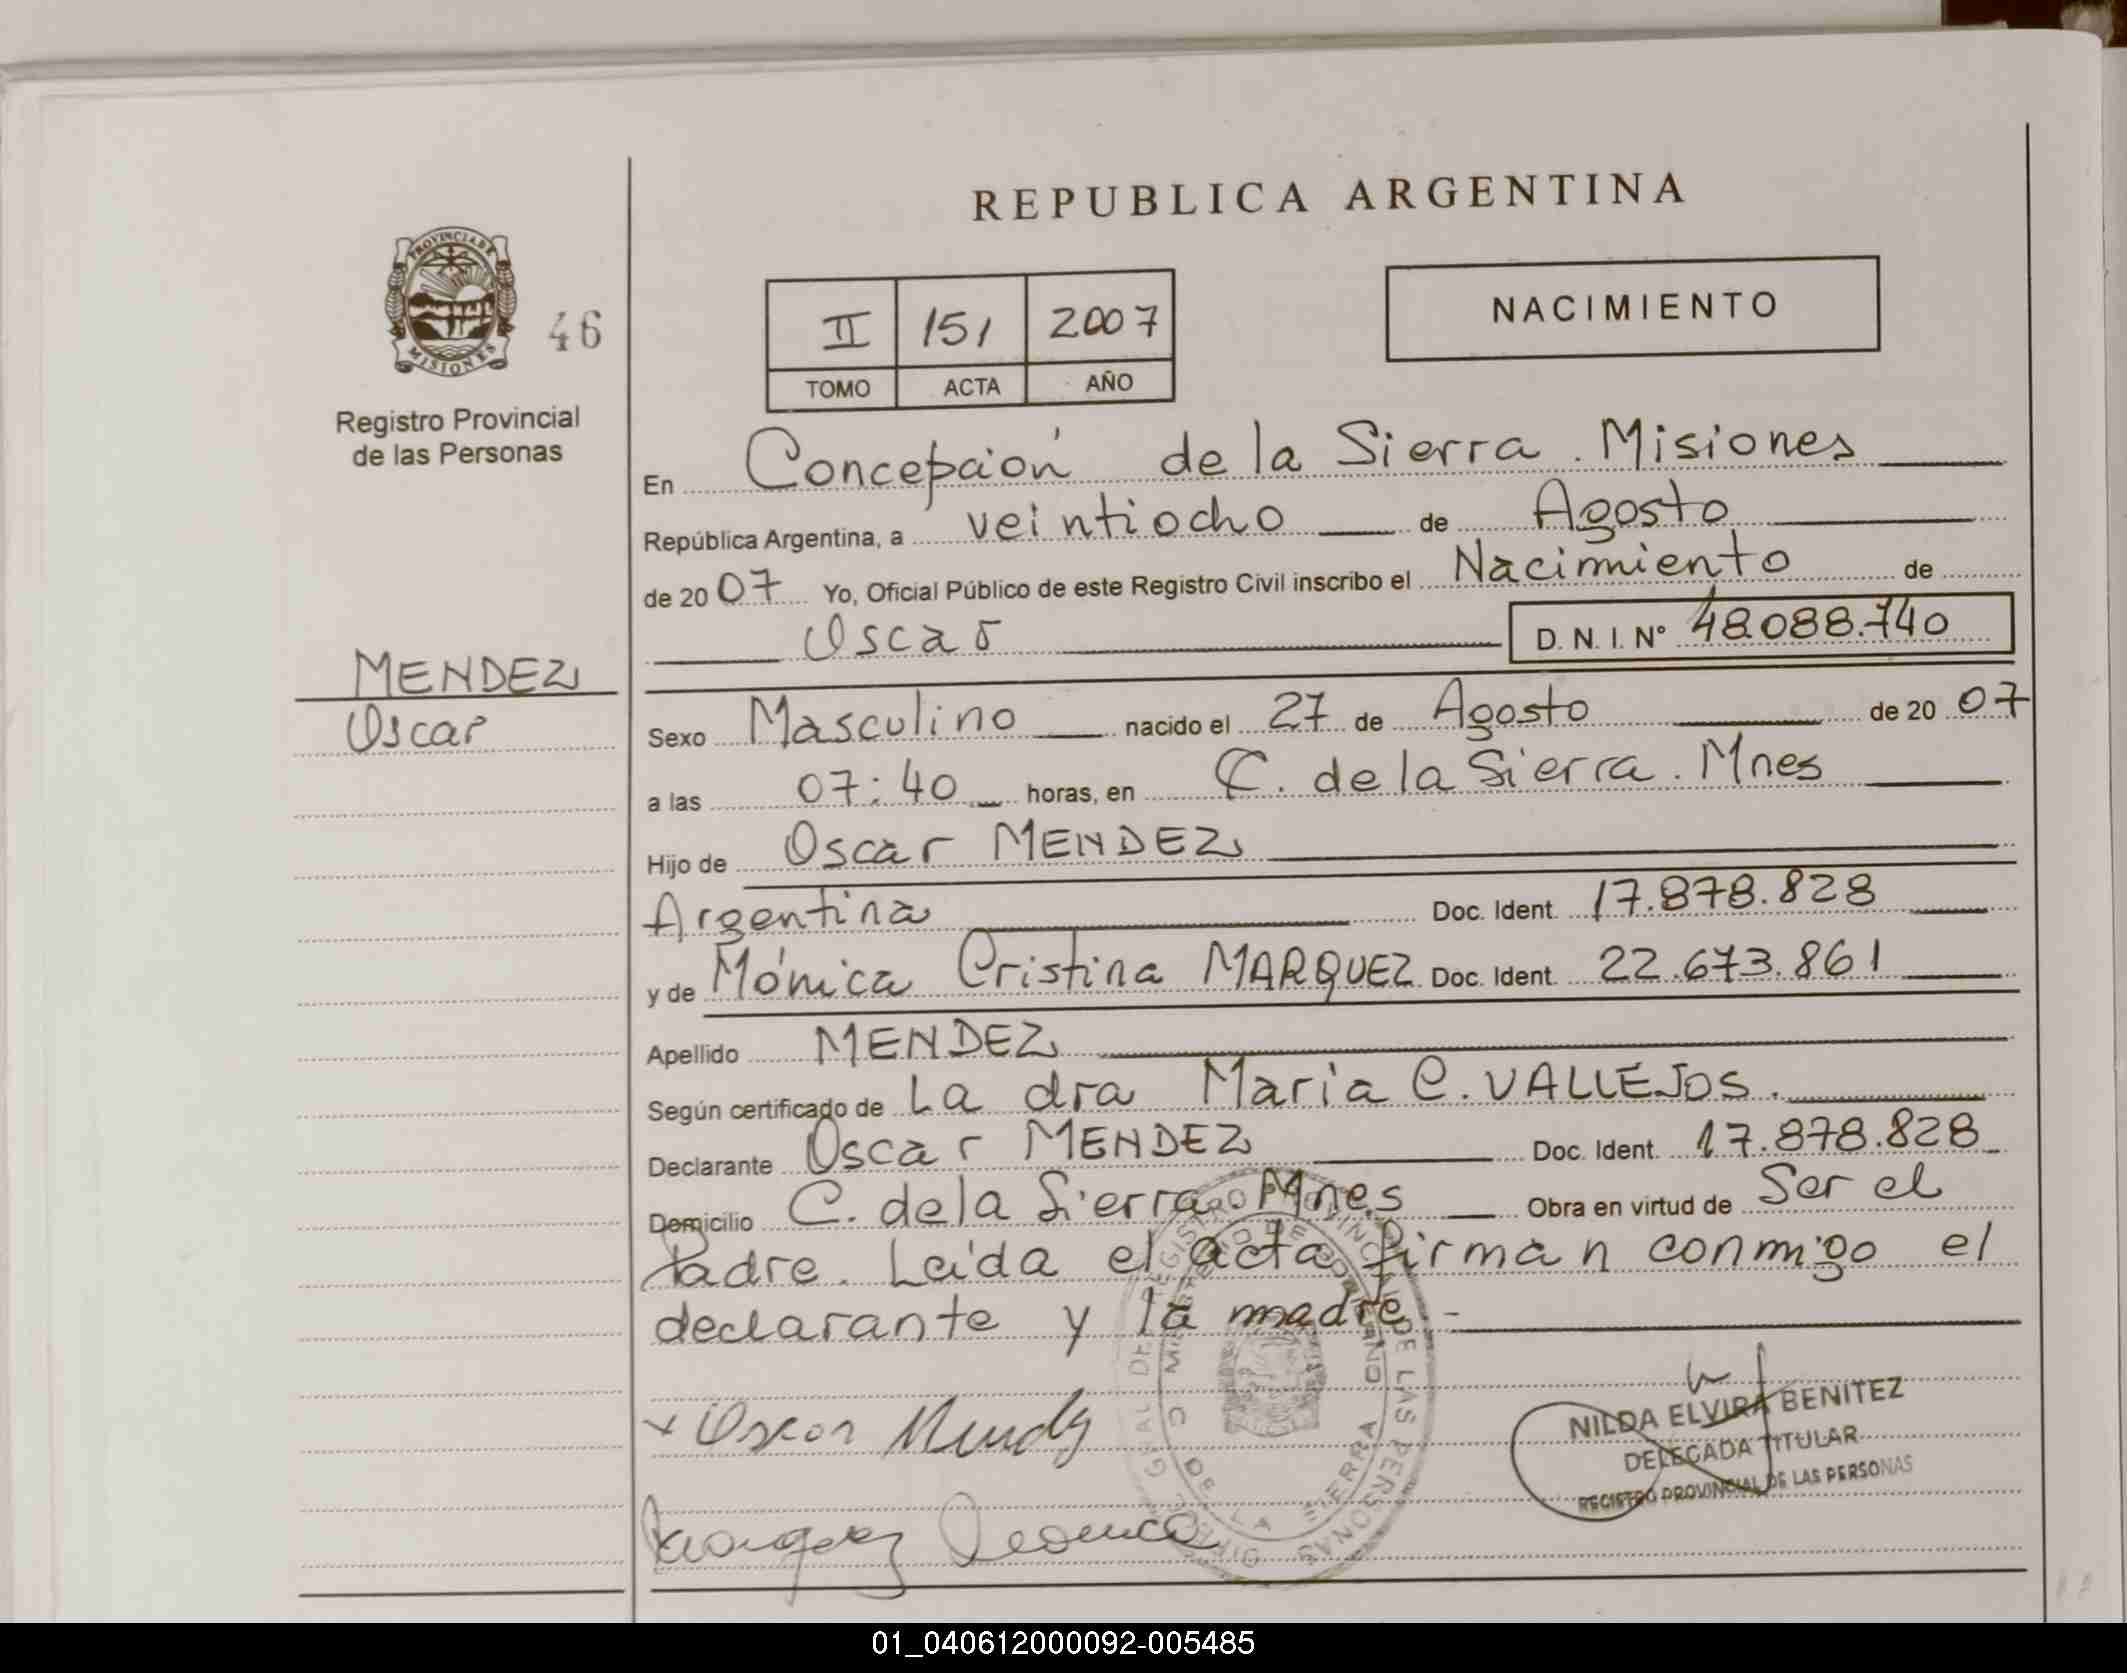 REPUBLICA ARGENTINA
PROVINCIA DE
MISIONES
46
Registro Provincial
de las Personas
II 151 2007
TOMO ACTA AÑO
NACIMIENTO
En Concepción de la Sierra. Misiones
República Argentina, a veintiocho de Agosto
de 2007 Yo, Oficial Público de este Registro Civil inscribo el Nacimiento de
Oscar D. N. I. N° 48.088.740
MENDEZ
Oscar
Sexo Masculino nacido el 27 de Agosto de 2007
a las 07:40 horas, en C. de la Sierra. Mnes
Hijo de Oscar MENDEZ
Argentina Doc. Ident. 17.878.828
y de Mónica Cristina MARQUEZ Doc. Ident. 22.673.861
Apellido MENDEZ
Según certificado de La dra Maria C. VALLEJOS.
Declarante Oscar MENDEZ Doc. Ident. 17.878.828
Domicilio C. de la Sierra Mnes Obra en virtud de Ser el
Padre. Leida el acta firman conmigo el
declarante y la madre -
x Oscar Mendez
NILDA ELVIRA BENITEZ
DELEGADA TITULAR
REGISTRO PROVINCIAL DE LAS PERSONAS
REGISTRO PROVINCIAL DE LAS PERSONAS
MINISTERIO DE GOBIERNO
DE LA SIERRA
01_040612000092-005485